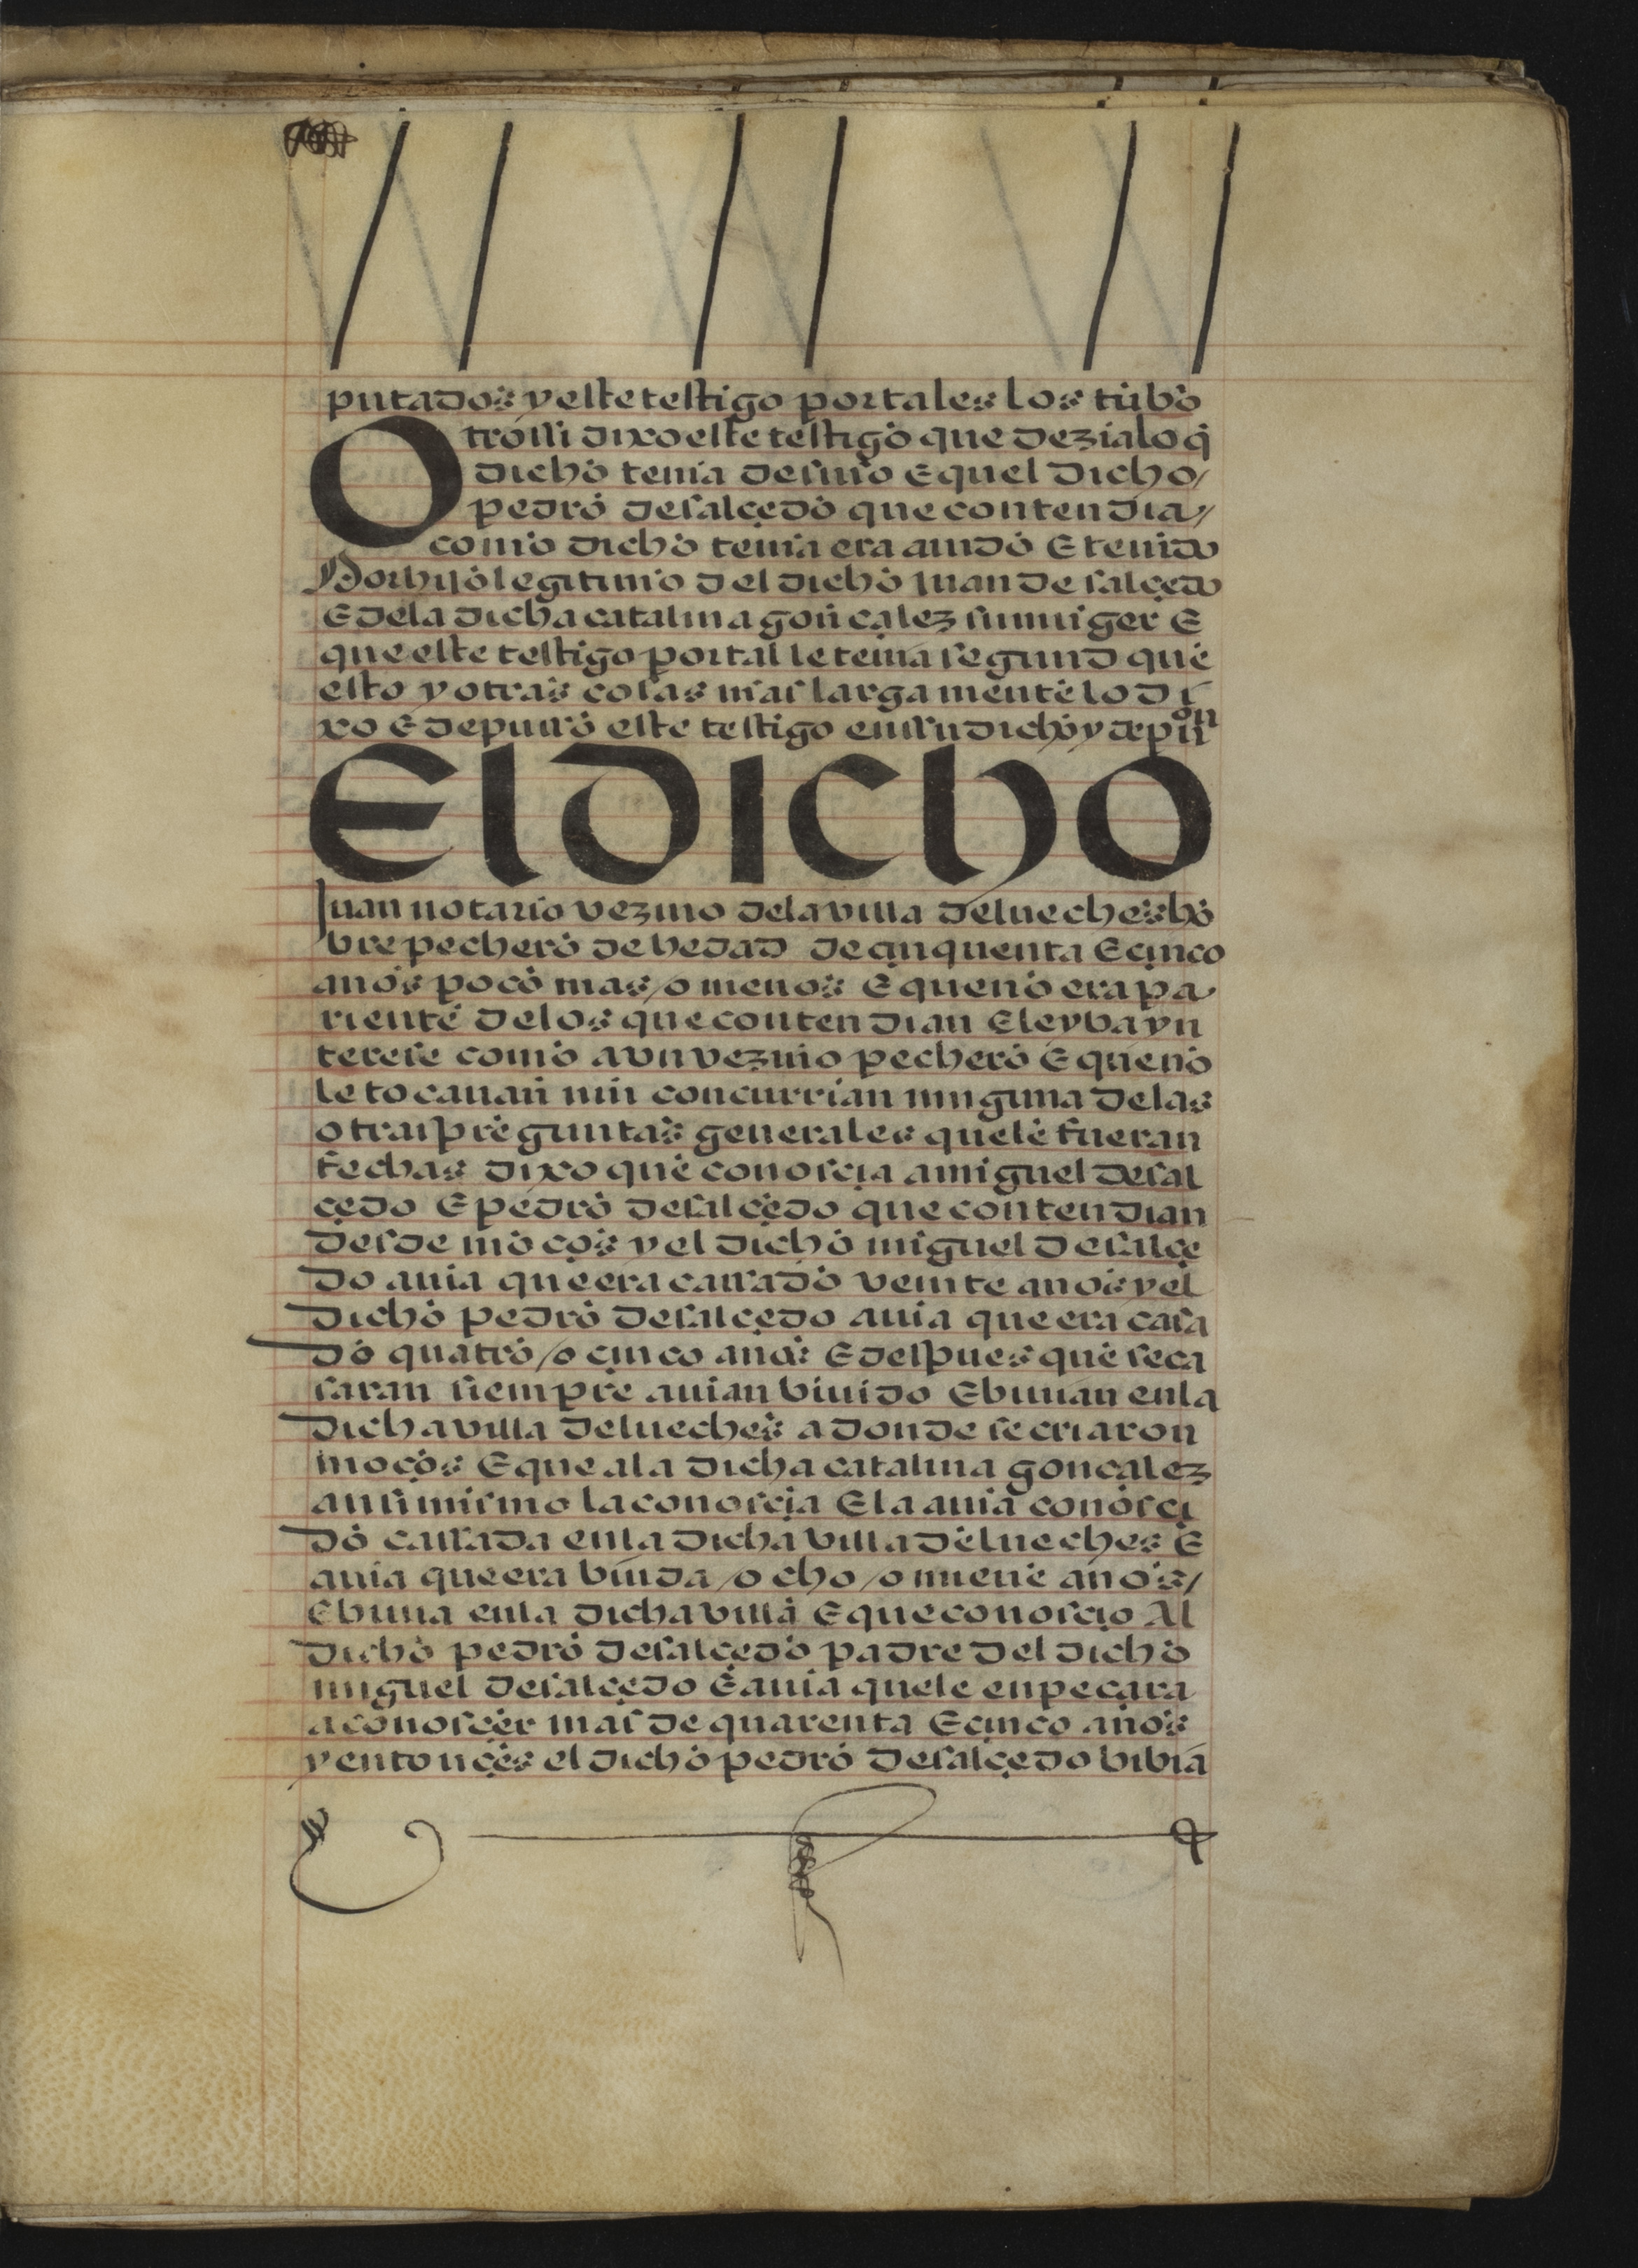 putados y este testigo por tales los tubo
Otrossi dixo este testigo que dezia lo q̃
dicho tenia desuso E quel dicho
pedro de salçedo que contendia
como dicho tenia era auido E tenido
Por hijo legitimo del dicho Juan de salçedo
E de la dicha catalina gonçalez su muger E
que este testigo por tal le tenia segund que
esto y otras cosas mas larga mente lo di
xo E depuso este testigo en su dicho y depusion
El DICHO
Juan notario vezino de la villa de lueches hõ
bre pechero de hedad de çinquenta E çinco
años poco mas / o menos E que no era pa
riente de los que contendian E le yba yn
terese como a vn vezino pechero E que no
le tocauan nin concurrian ninguna de las
otras preguntas generales que le fueran
fechas dixo que conosçia a miguel de sal
çedo E pedro de salçedo que contendian
desde moços y el dicho miguel de salçe
do auia que era cassado veinte años y el
dicho pedro de salçedo auia que era casa
do quatro / o çinco años E despues que se ca
saran siempre auian biuido E biuian en la
dicha villa de lueches a donde se criaron
moços E que a la dicha catalina gonçalez
ansi mismo la conosçia E la auia conosçi
do cassada en la dicha villa de lueches E
auia que era biuda / ocho / o nueue años /
E biuia en la dicha villa E que conosçio Al
dicho pedro de salçedo padre del dicho
miguel de salçedo E auia que le enpeçara
a conosçer mas de quarenta E çinco años
y entonçes el dicho pedro de salçedo bibia